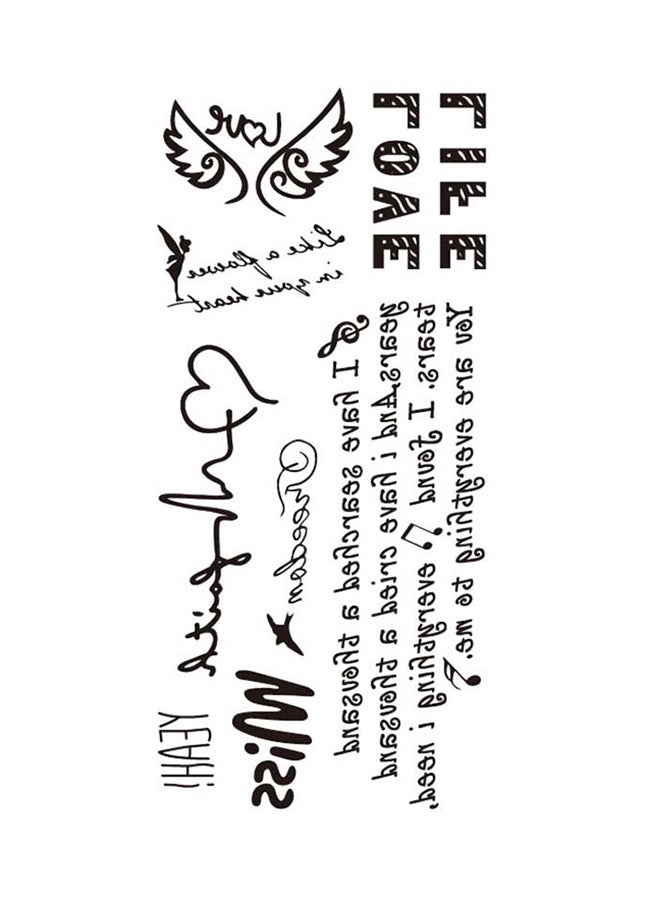 Love
LOVE
LIFE
Like a flower
in your heart
I have searched a thousand
years.And i have cried a thousand
tears. I found everything i need,
You are everything to me.
faith
Freedom
Miss
YEAH!